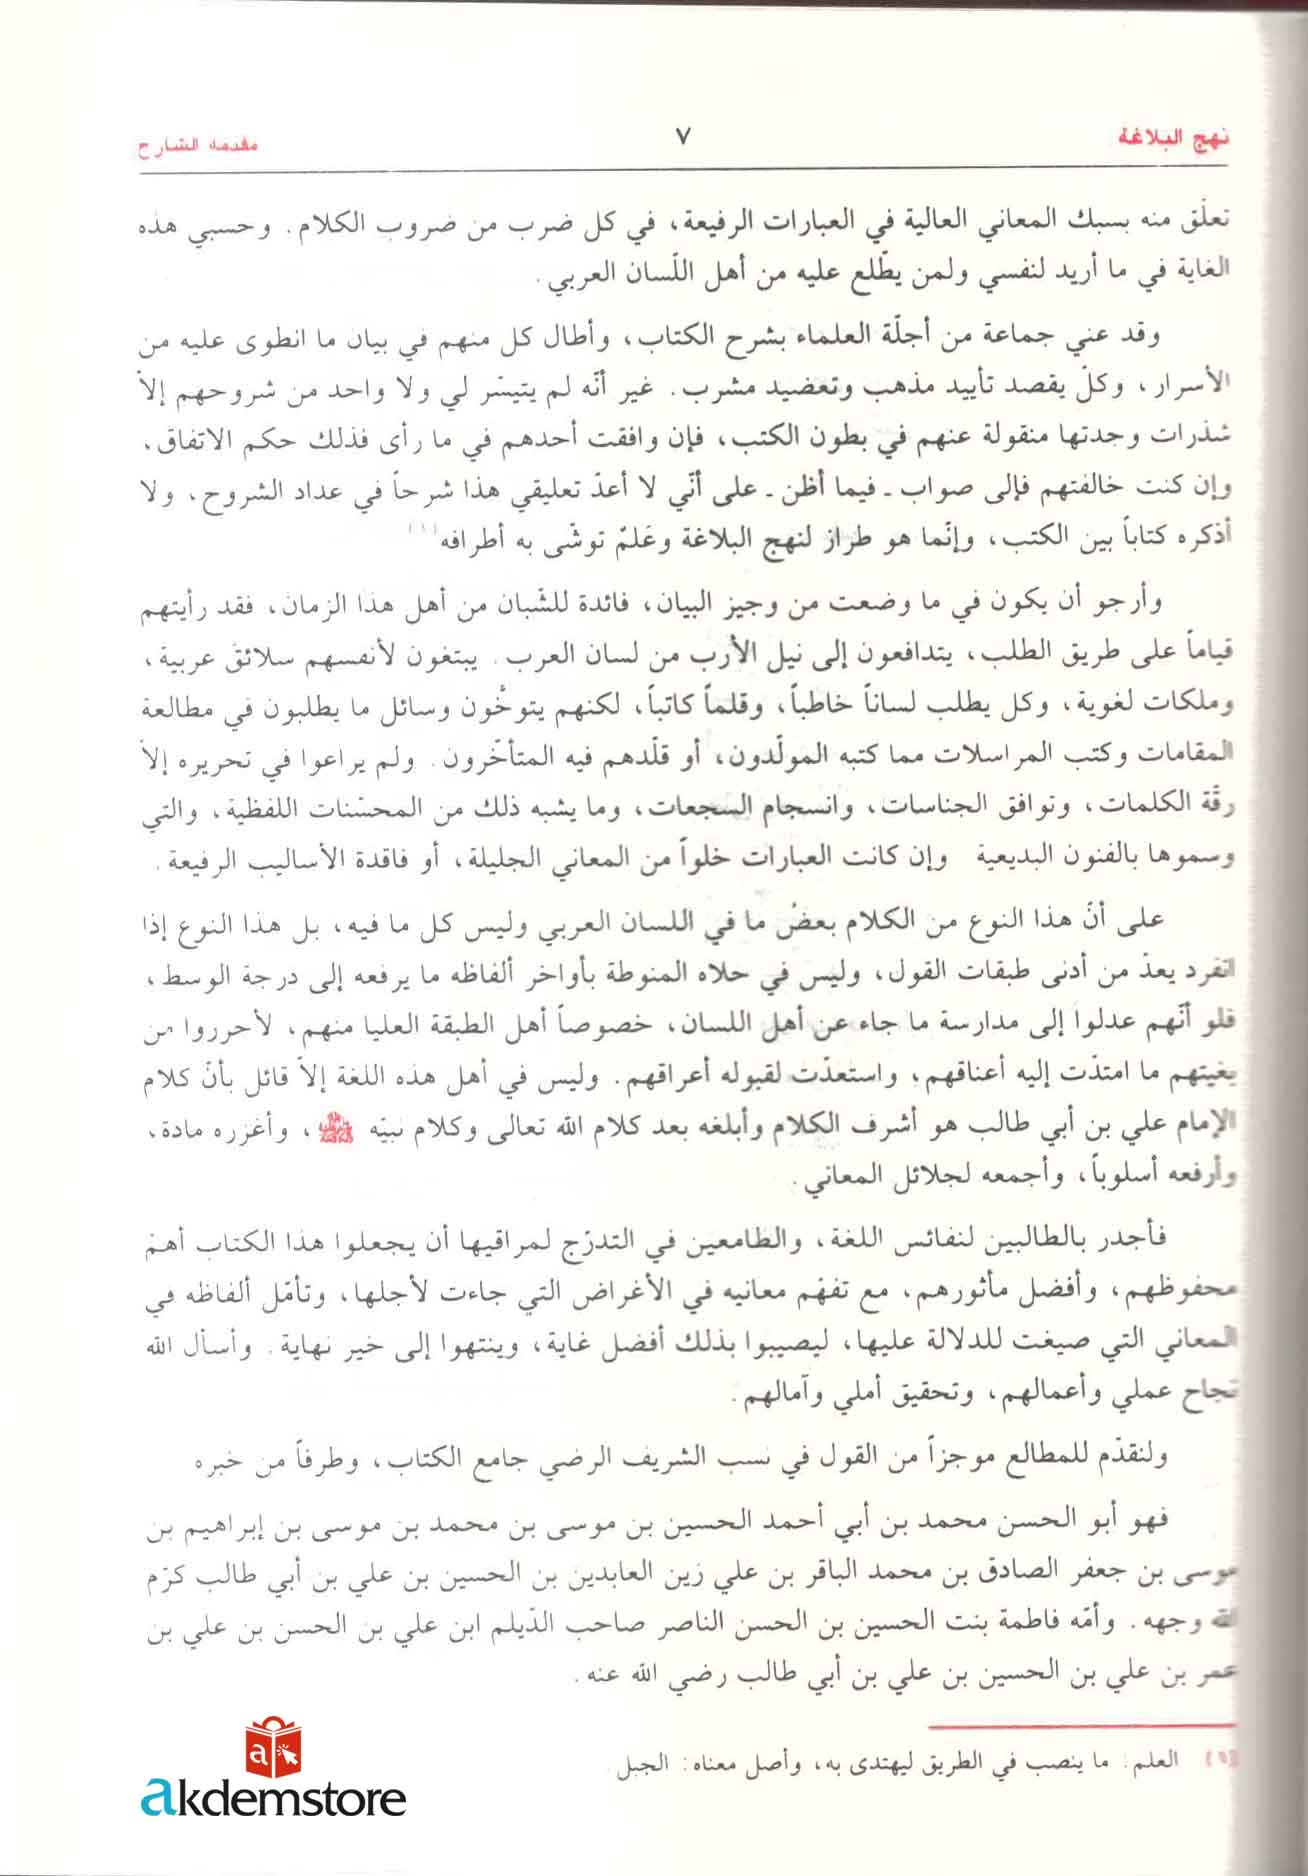 نهج البلاغة ٧ مقدمه الشارح
تعلّق منه بسبك المعاني العالية في العبارات الرفيعة، في كل ضرب من ضروب الكلام. وحسبي هذه
الغاية في ما أريد لنفسي ولمن يطّلع عليه من أهل اللّسان العربي.
وقد عني جماعة من أجلّة العلماء بشرح الكتاب، وأطال كل منهم في بيان ما انطوى عليه من
الأسرار، وكلّ يقصد تأييد مذهب وتعضيد مشرب. غير أنّه لم يتيسّر لي ولا واحد من شروحهم إلاّ
شذرات وجدتها منقولة عنهم في بطون الكتب، فإن وافقت أحدهم في ما رأى فذلك حكم الاتفاق،
وإن كنت خالفتهم فإلى صواب ـ فيما أظن ـ على أنّي لا أعدّ تعليقي هذا شرحاً في عداد الشروح، ولا
أذكره كتاباً بين الكتب، وإنّما هو طراز لنهج البلاغة وعَلمٌ توشّى به أطرافه(١)
وأرجو أن يكون في ما وضعت من وجيز البيان، فائدة للشّبان من أهل هذا الزمان، فقد رأيتهم
قياماً على طريق الطلب، يتدافعون إلى نيل الأرب من لسان العرب. يبتغون لأنفسهم سلائق عربية،
وملكات لغوية، وكل يطلب لساناً خاطباً، وقلماً كاتباً، لكنهم يتوخّون وسائل ما يطلبون في مطالعة
المقامات وكتب المراسلات مما كتبه المولّدون، أو قلّدهم فيه المتأخّرون. ولم يراعوا في تحريره إلاّ
رقّة الكلمات، وتوافق الجناسات، وانسجام السجعات، وما يشبه ذلك من المحسّنات اللفظية، والتي
وسموها بالفنون البديعية وإن كانت العبارات خلواً من المعاني الجليلة، أو فاقدة الأساليب الرفيعة.
على أنّ هذا النوع من الكلام بعضُ ما في اللسان العربي وليس كل ما فيه، بل هذا النوع إذا
انفرد يعدّ من أدنى طبقات القول، وليس في حلاه المنوطة بأواخر ألفاظه ما يرفعه إلى درجة الوسط،
فلو أنّهم عدلوا إلى مدارسة ما جاء عن أهل اللسان، خصوصاً أهل الطبقة العليا منهم، لأحرروا من
بغيتهم ما امتدّت إليه أعناقهم، واستعدّت لقبوله أعراقهم. وليس في أهل هذه اللغة إلاّ قائل بأنّ كلام
الإمام علي بن أبي طالب هو أشرف الكلام وأبلغه بعد كلام الله تعالى وكلام نبيّه ﷺ، وأغزره مادة،
وأرفعه أسلوباً، وأجمعه لجلائل المعاني.
فأجدر بالطالبين لنفائس اللغة، والطامعين في التدرّج لمراقيها أن يجعلوا هذا الكتاب أهمّ
محفوظهم، وأفضل مأثورهم، مع تفهّم معانيه في الأغراض التي جاءت لأجلها، وتأمّل ألفاظه في
المعاني التي صيغت للدلالة عليها، ليصيبوا بذلك أفضل غاية، وينتهوا إلى خير نهاية. وأسأل الله
نجاح عملي وأعمالهم، وتحقيق أملي وآمالهم.
ولنقدّم للمطالع موجزاً من القول في نسب الشريف الرضي جامع الكتاب، وطرفاً من خبره
فهو أبو الحسن محمد بن أبي أحمد الحسين بن موسى بن محمد بن موسى بن إبراهيم بن
موسى بن جعفر الصادق بن محمد الباقر بن علي زين العابدين بن الحسين بن علي بن أبي طالب كرّم
الله وجهه. وأمّه فاطمة بنت الحسين بن الحسن الناصر صاحب الدّيلم ابن علي بن الحسن بن علي بن
عمر بن علي بن الحسين بن علي بن أبي طالب رضي الله عنه.
(١) العلم: ما ينصب في الطريق ليهتدى به، وأصل معناه: الجبل.
a
akdemstore